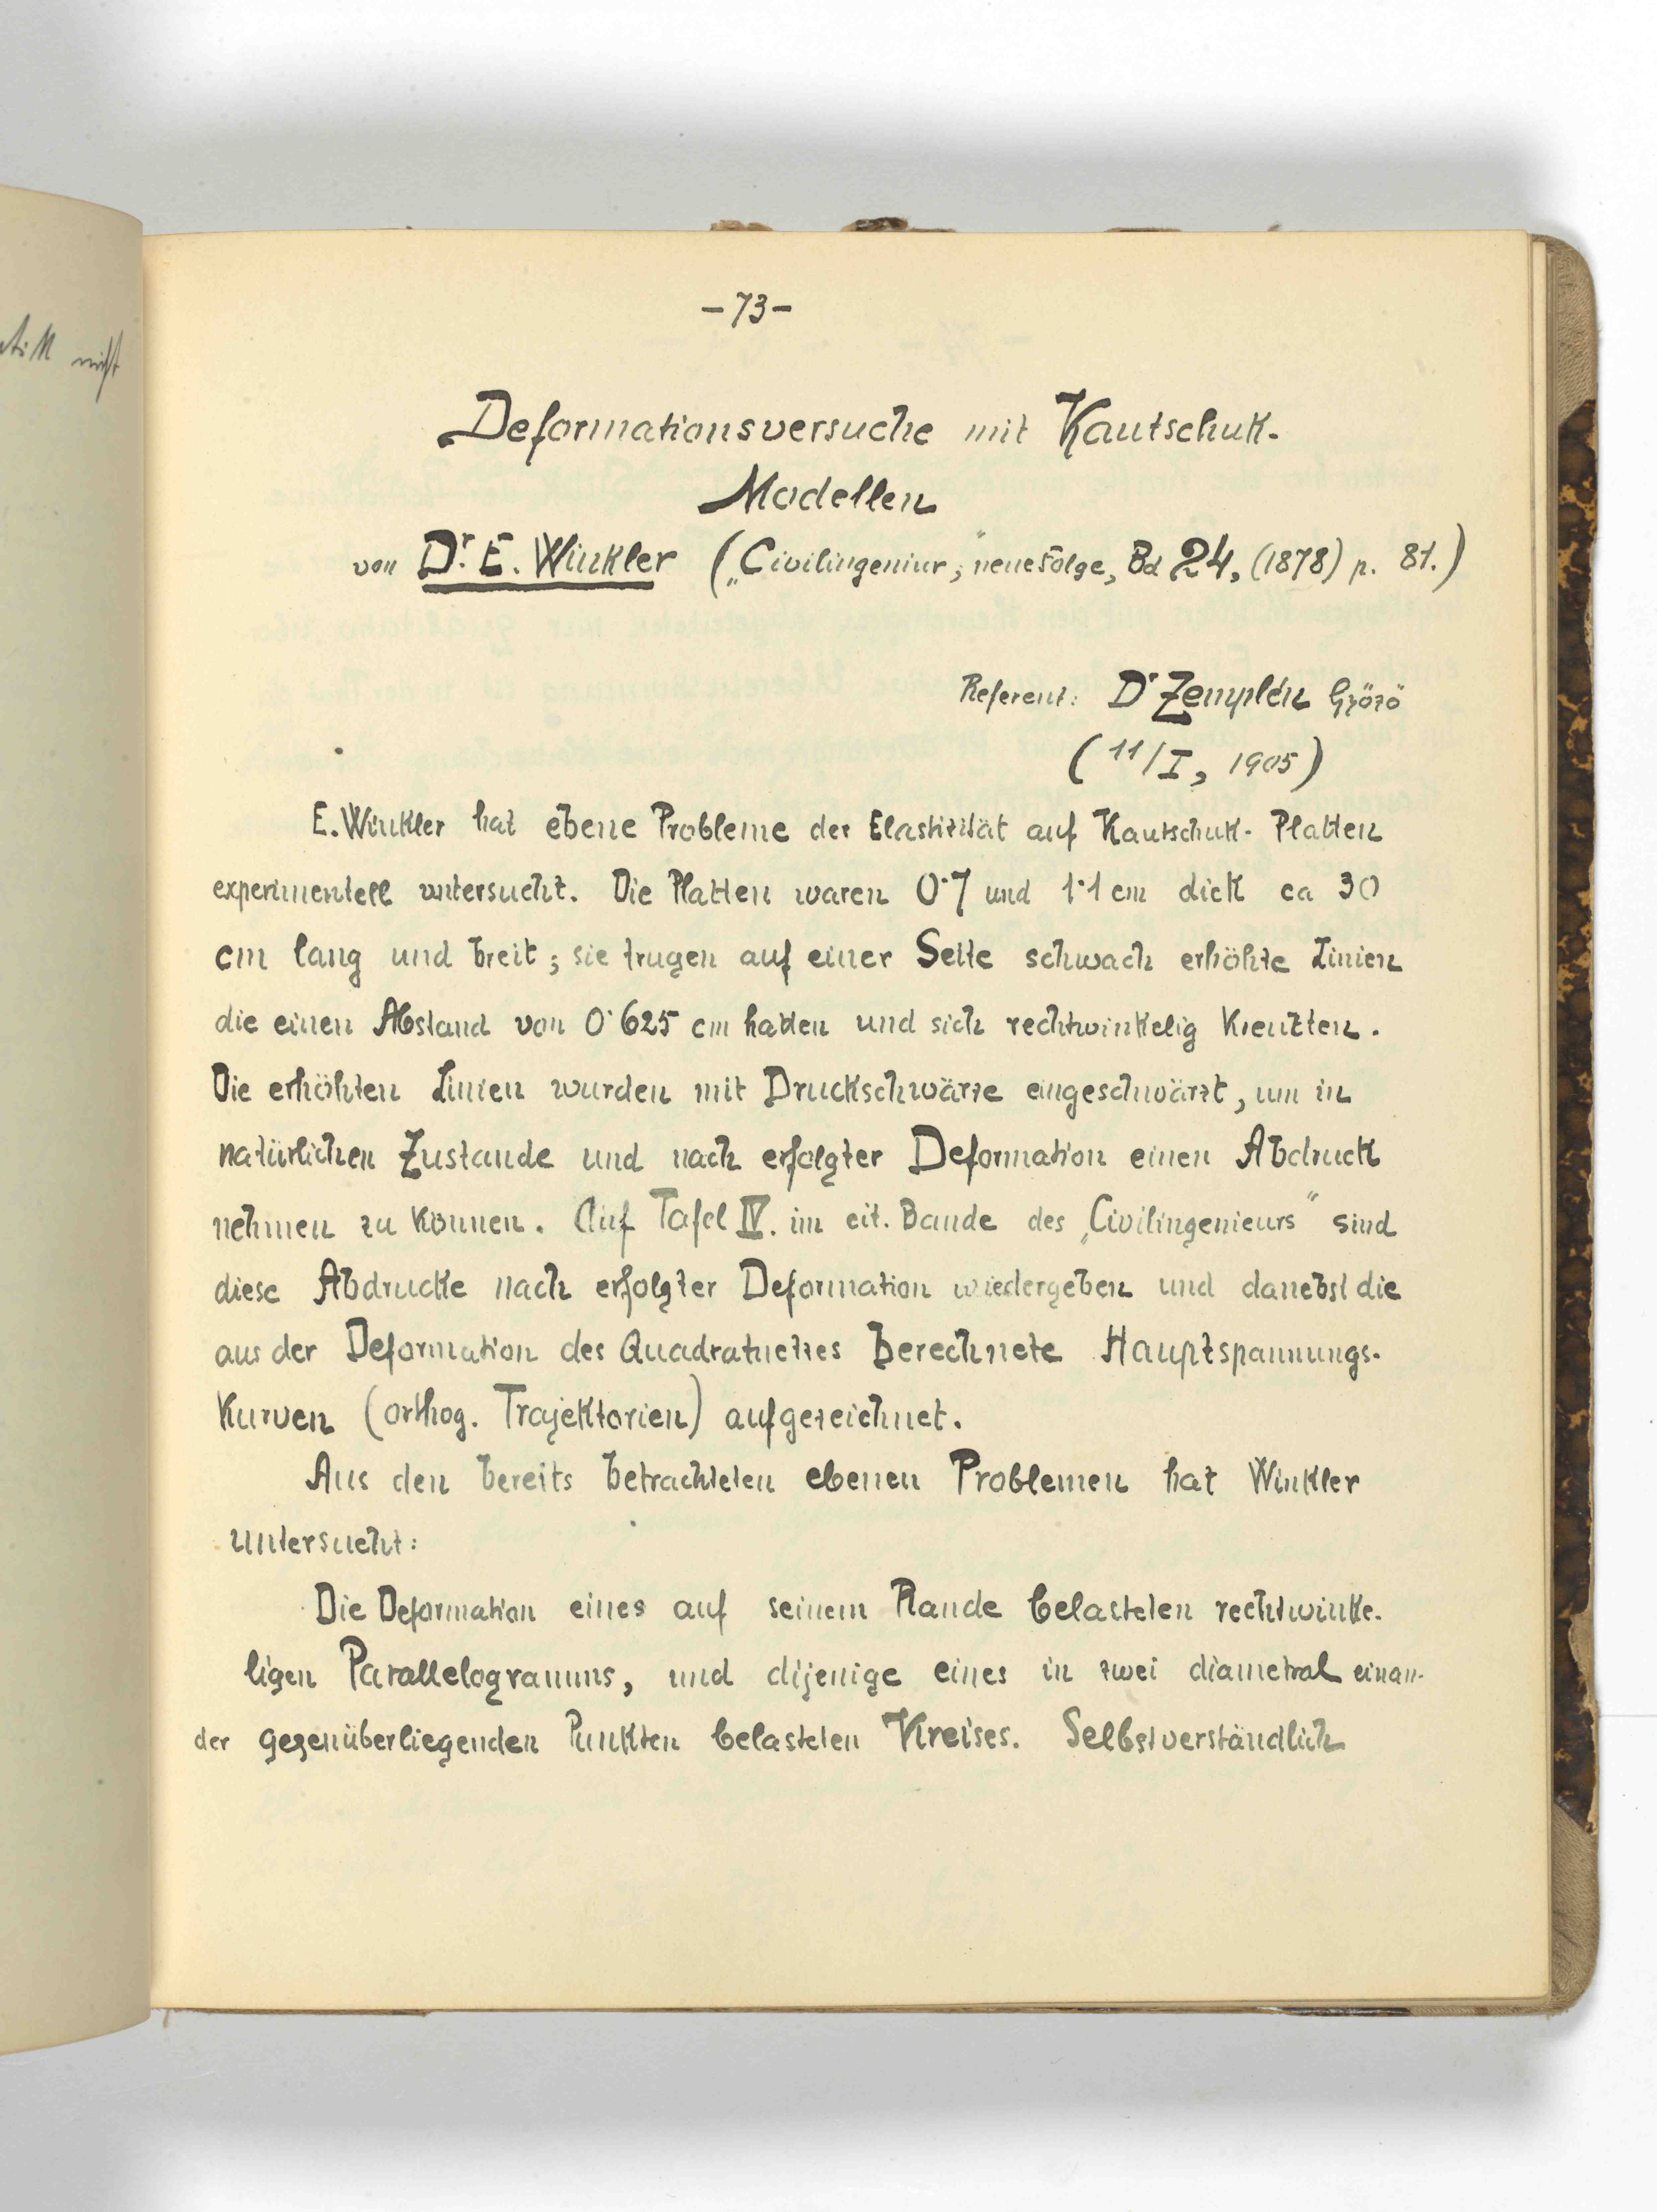 nicht
-73-
Deformationsversuche mit Kautschuk-
Modellen
von Dr. E. Winkler („Civilingeniur,“ neue Folge, Bd 24, (1878) p. 81.)
Referent: Dr Zemplén Győző
(11/I, 1905)
E. Winkler hat ebene Probleme der Elastizität auf Kautschuk-Platten
experimentell untersucht. Die Platten waren 0·7 und 1·1 cm dick ca 30
cm lang und breit; sie trugen auf einer Seite schwach erhöhte Linien
die einen Abstand von 0·625 cm hatten und sich rechtwinkelig kreuzten.
Die erhöhten Linien wurden mit Druckschwärze eingeschwärzt, um in
natürlichen Zustande und nach erfolgter Deformation einen Abdruck
nehmen zu können. Auf Tafel IV. im cit. Bande des „Civilingenieurs“ sind
diese Abdrucke nach erfolgter Deformation wiedergeben und danebst die
aus der Deformation des Quadratnetzes berechnete Hauptspannungs-
kurven (orthog. Trajektorien) aufgezeichnet.
Aus den bereits betrachteten ebenen Problemen hat Winkler
untersucht:
Die Deformation eines auf seinem Rande belasteten rechtwinke-
ligen Parallelogramms, und dijenige eines in zwei diametral einan-
der gegenüberliegenden Punkten belasteten Kreises. Selbstverständlich